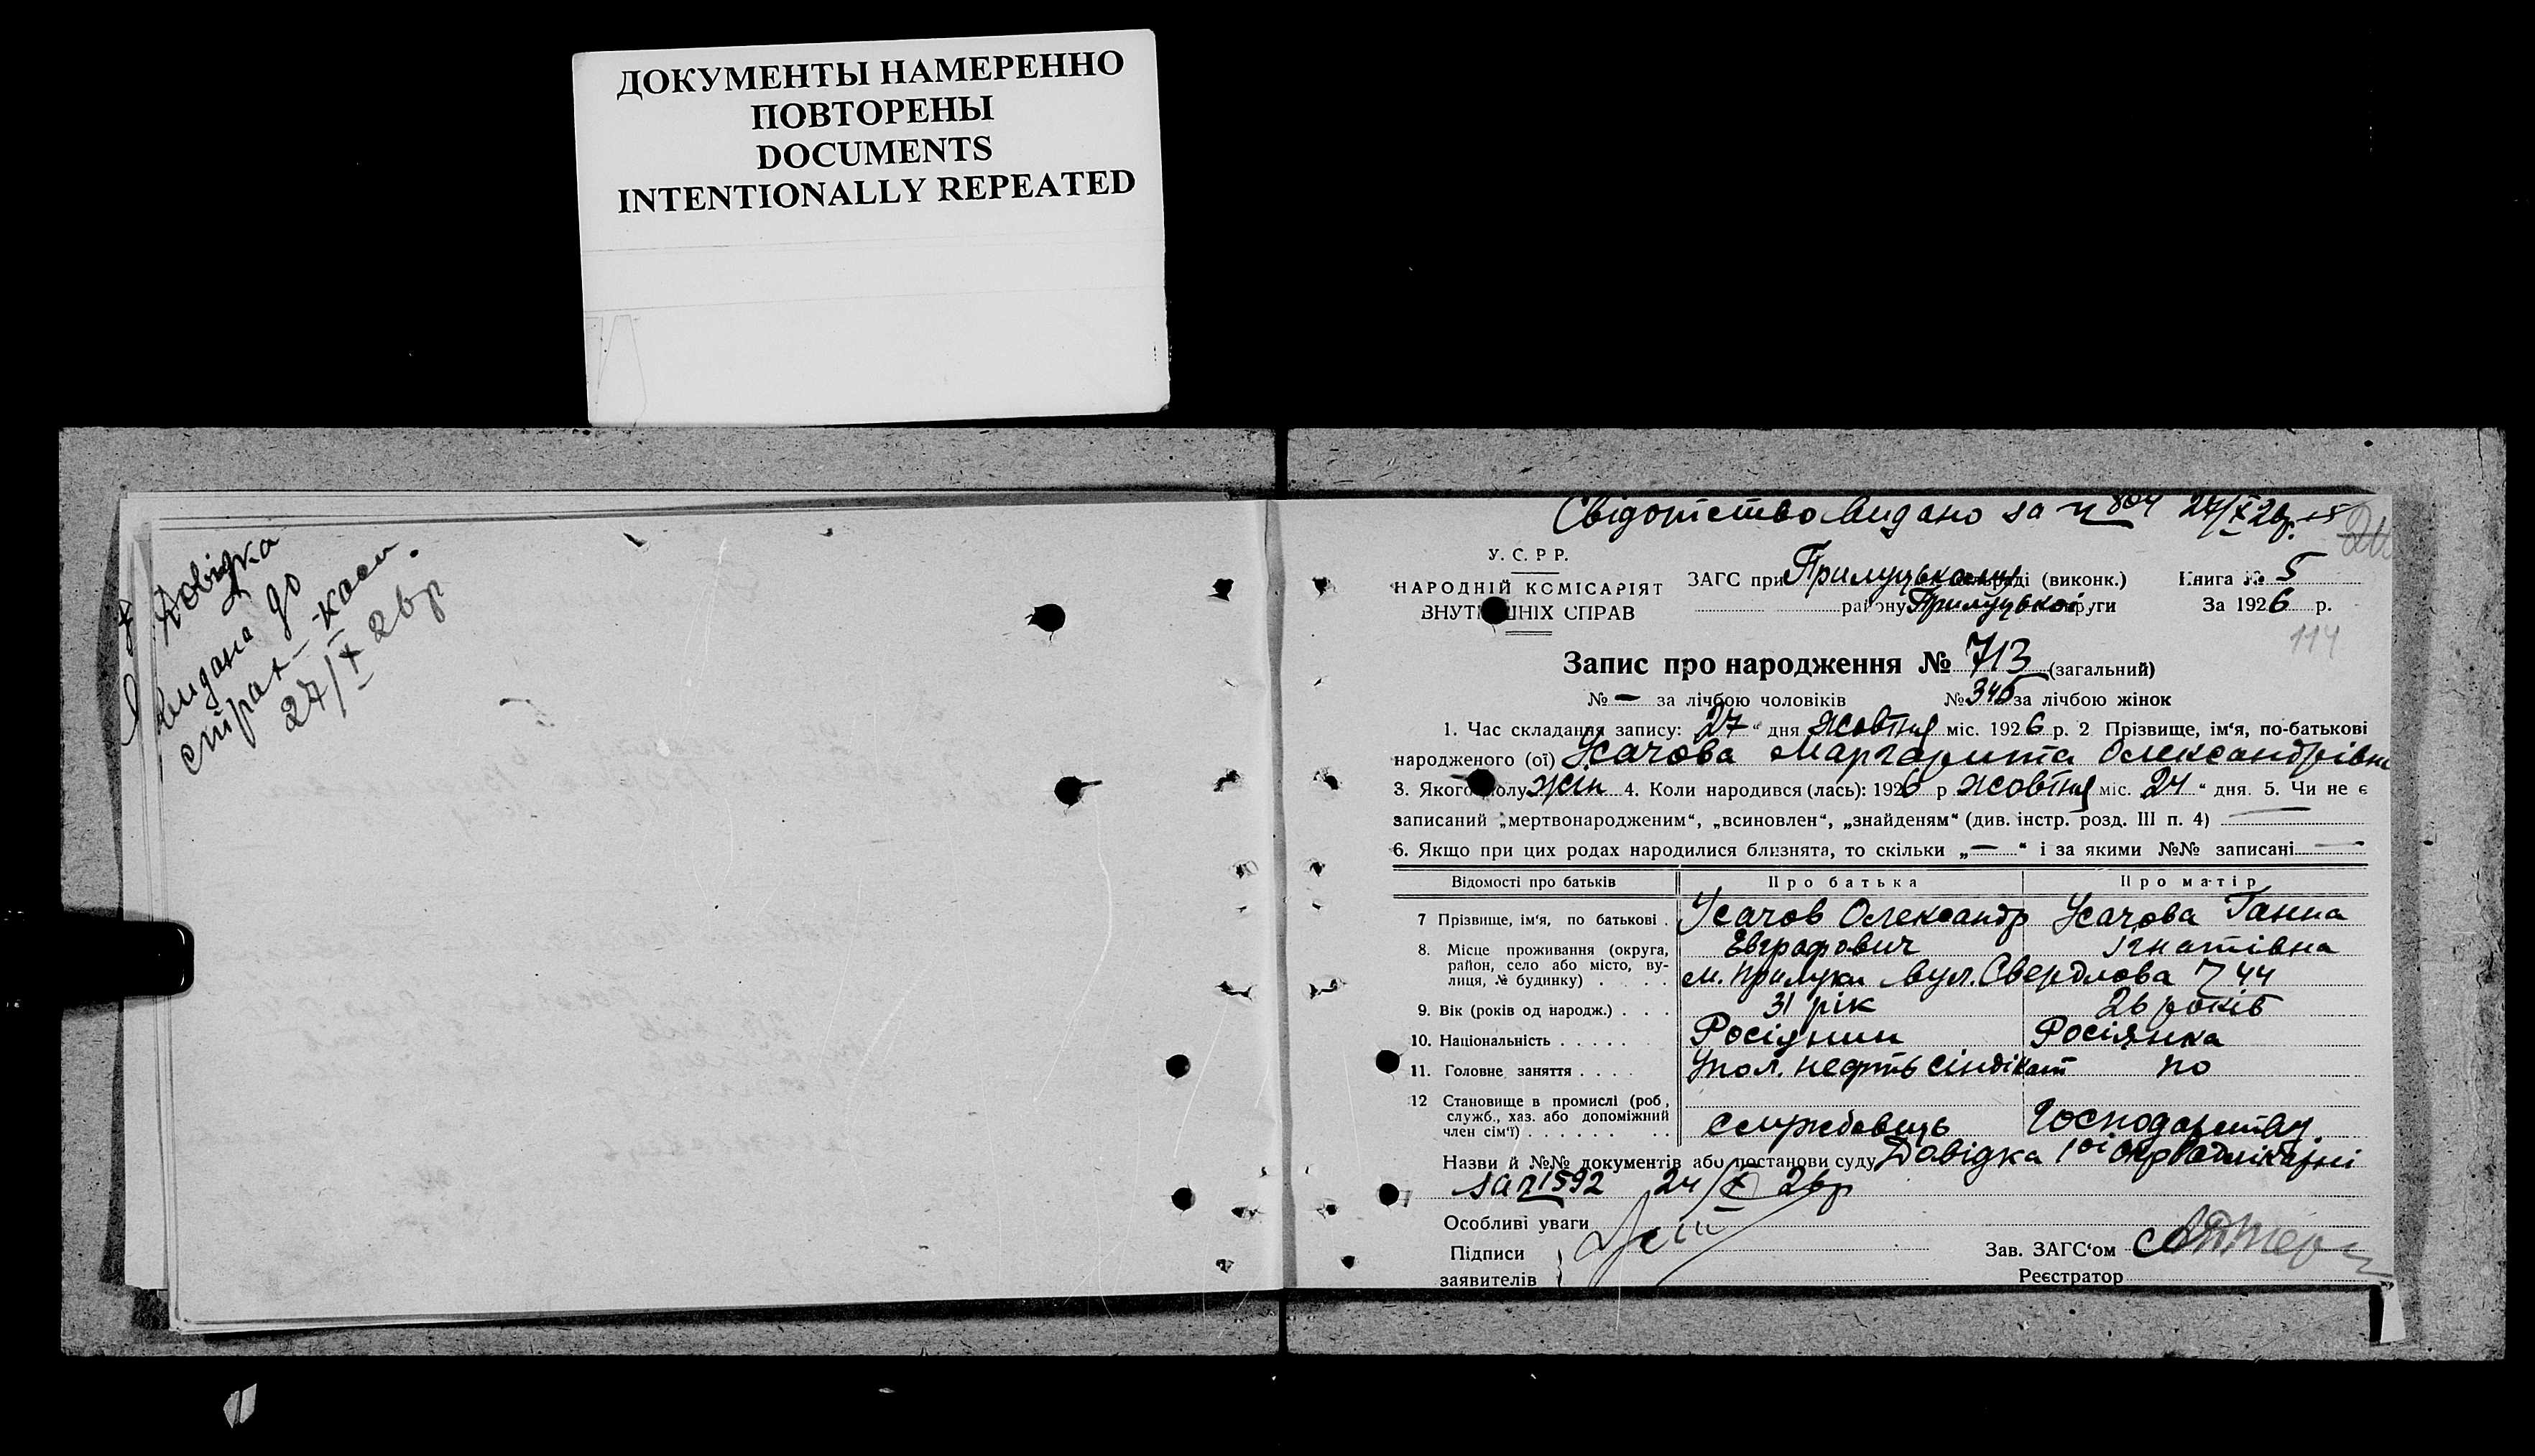 ДОКУМЕНТЫ НАМЕРЕННО
ПОВТОРЕНЫ
DOCUMENTS
INTENTIONALLY REPEATED
Довідка
видана до
страх-каси.
27/X 26р
Свідотство видано за № 804 27/X 26р.
У. С. Р. Р.
НАРОДНІЙ КОМІСАРІЯТ
ВНУТРІШНІХ СПРАВ
ЗАГС при Прилуцькому (виконк.)
району Прилуцької округи
Книга № 5
За 1926 р.
114
Запис про народження № 713 (загальний)
№ — за лічбою чоловіків № 346 за лічбою жінок
1. Час складання запису: 27 " дня жовтня міс. 1926 р. 2 Прізвище, ім'я, по-батькові
народженого (ої) Усачова Маргарита Олександрівна
3. Якого полу жін 4. Коли народився (лась): 1926 р жовтня міс. 24 " дня. 5. Чи не є
записаний „мертвонародженим“, „всиновлен“, „знайденям“ (див. інстр. розд. III п. 4) —
6. Якщо при цих родах народилися близнята, то скільки „—“ і за якими №№ записані —
Відомості про батьків Про батька Про матір
7 Прізвище, ім'я, по батькові . Усачов Олександр Усачова Ганна
Евграфович Ігнатівна
8. Місце проживання (округа, район, село або місто, вулиця, № будинку) . . . . м. Прилуки вул. Свердлова 44
9. Вік (років од народж.) . . . 31 рік 26 років
10. Національність . . . . . Росіянин Росіянка
11. Головне заняття . . . . Упол. нефтьсіндікат по
12 Становище в промислі (роб, служб., хаз. або допоміжний член сім'ї) . . . . . . . . службовець господарству.
Назви й №№ документів або постанови суду Довідка 1ої
за № 1592 24/X 26р
Особливі уваги
Підписи
заявителів
Зав. ЗАГС'ом
Реєстратор